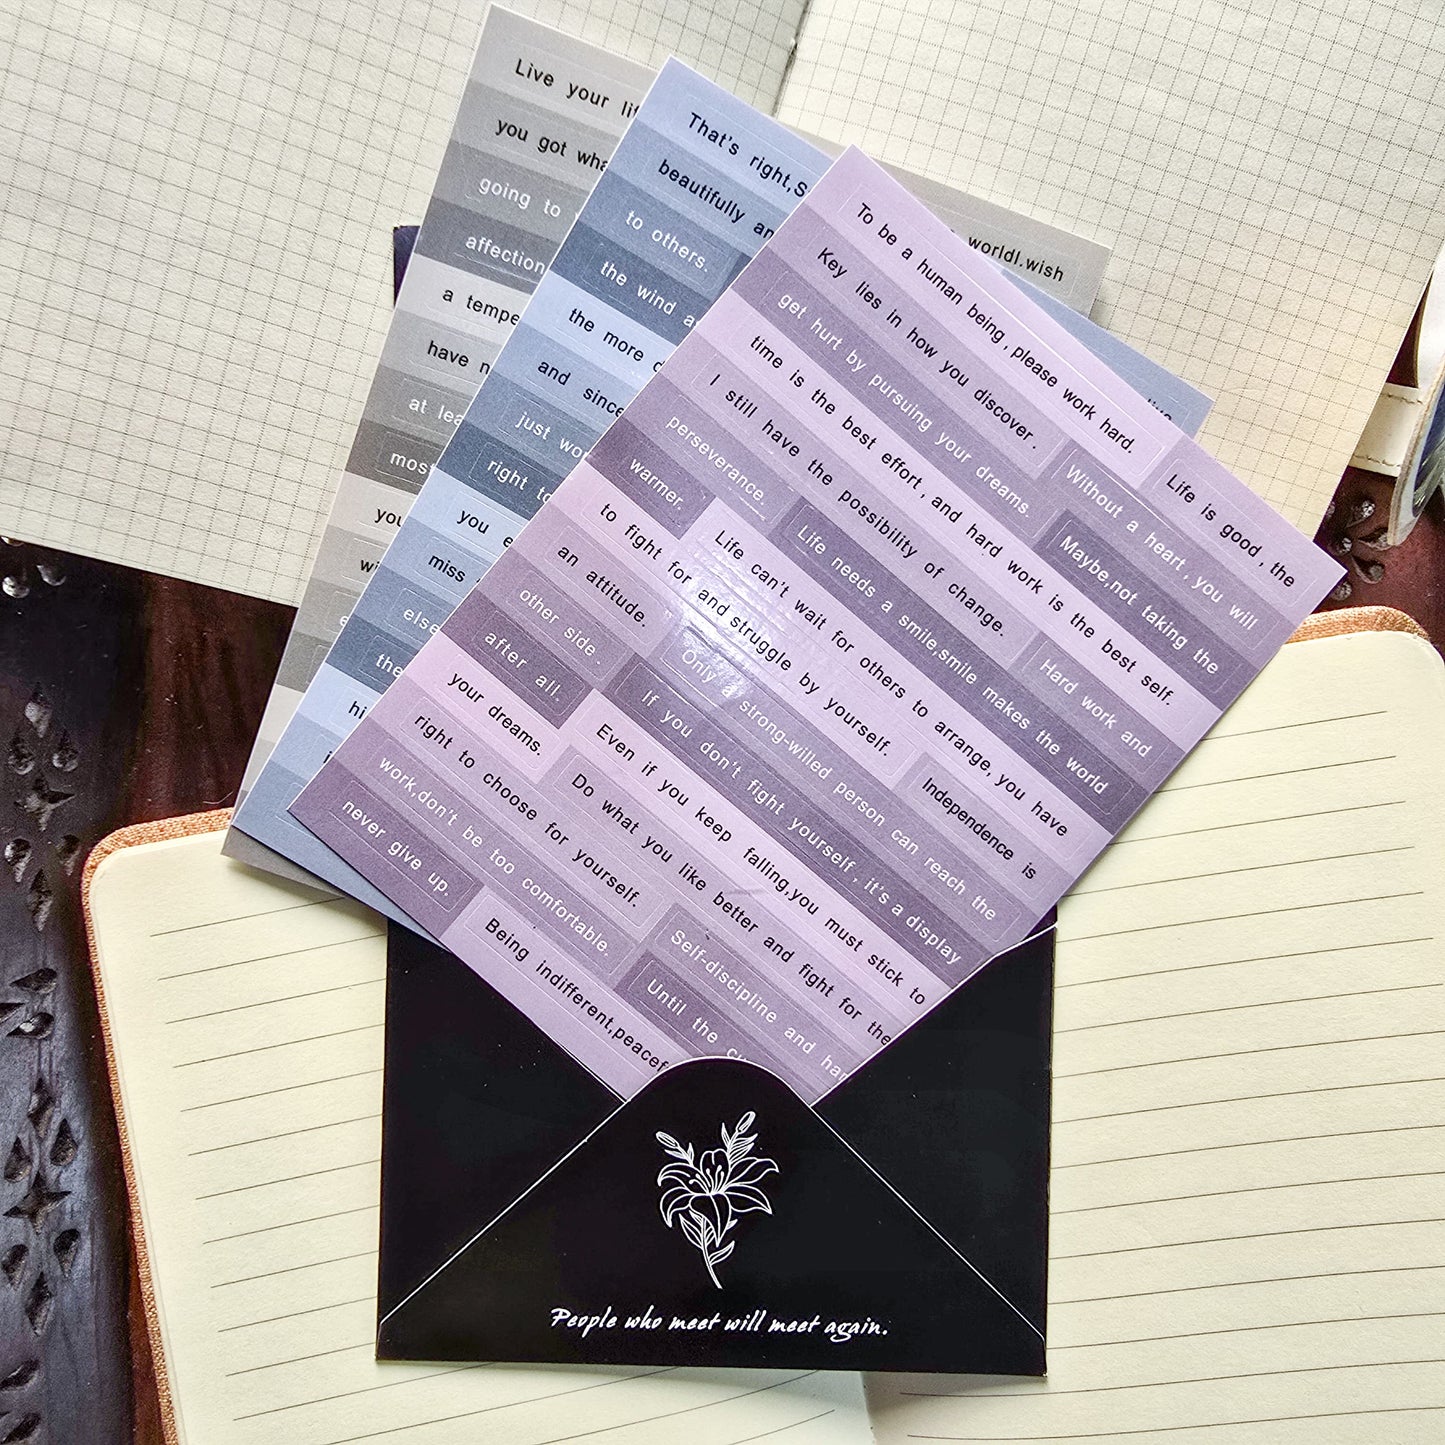 Live your
you got
going to
affection
a
have
at
you
worldI.wish
That's right,
beautifully
to others.
the wind
the more
and
just
right
you
miss
the
To be a human being , please work hard. Life is good , the
Key lies in how you discover . Without a heart , you will
get hurt by pursuing your dreams. Maybe,not taking the
time is the best effort , and hard work is the best self.
I still have the possibility of change. Hard work and
perseverance. Life needs a smile,smile makes the world
warmer. Life can't wait for others to arrange, you have
to fight for and struggle by yourself. Independence is
an attitude. Only a strong-willed person can reach the
other side . If you don't fight yourself , it's a display
after all. Even if you keep falling,you must stick to
your dreams. Do what you like better and fight for the
right to choose for yourself. Self-discipline and
work,don't be too comfortable. Until the
never give up. Being indifferent,
People who meet will meet again.